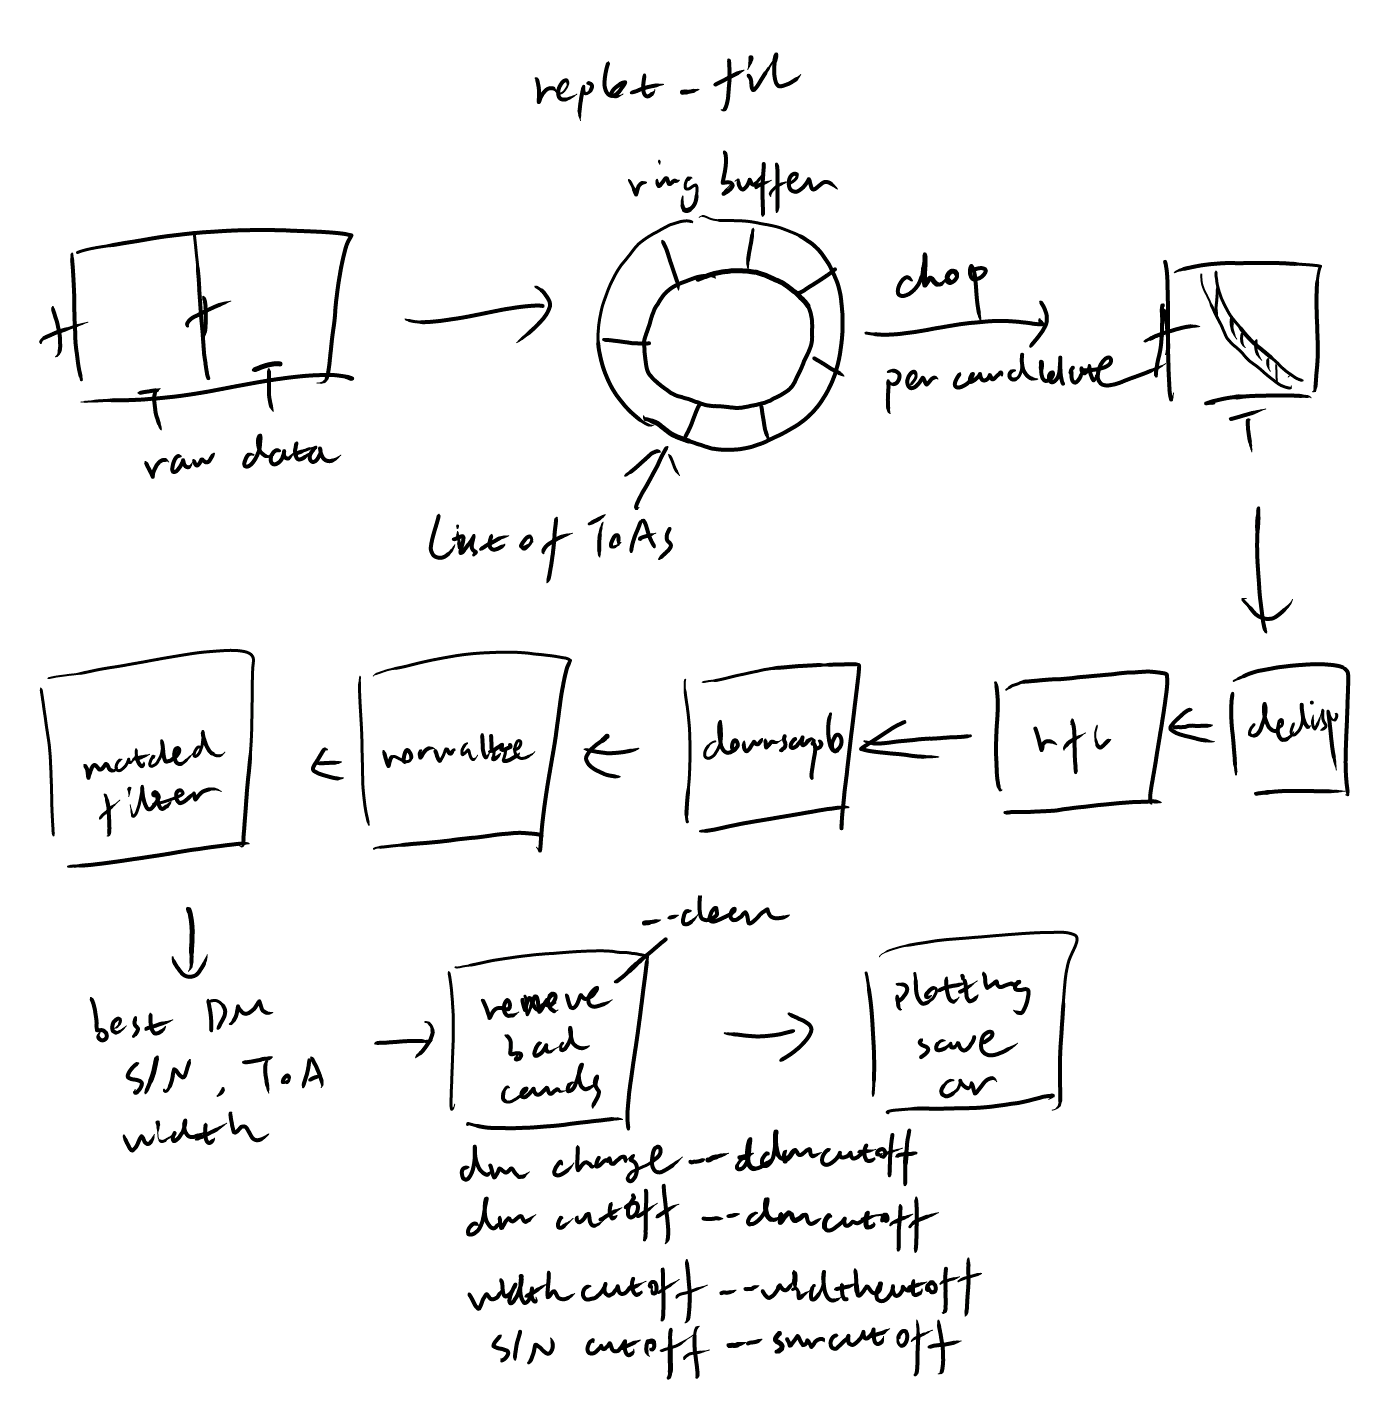 replot_fil
ring buffer
f
f
T
T
raw data
chop
per candidate
f
T
List of ToAs
dedisp
rfi
downsample
normalize
matched
filter
best DM
S/N, ToA
width
--clean
remove
bad
cands
plotting
save
ar
dm change --ddmcutoff
dm cutoff --dmcutoff
width cutoff --widthcutoff
S/N cutoff --snrcutoff